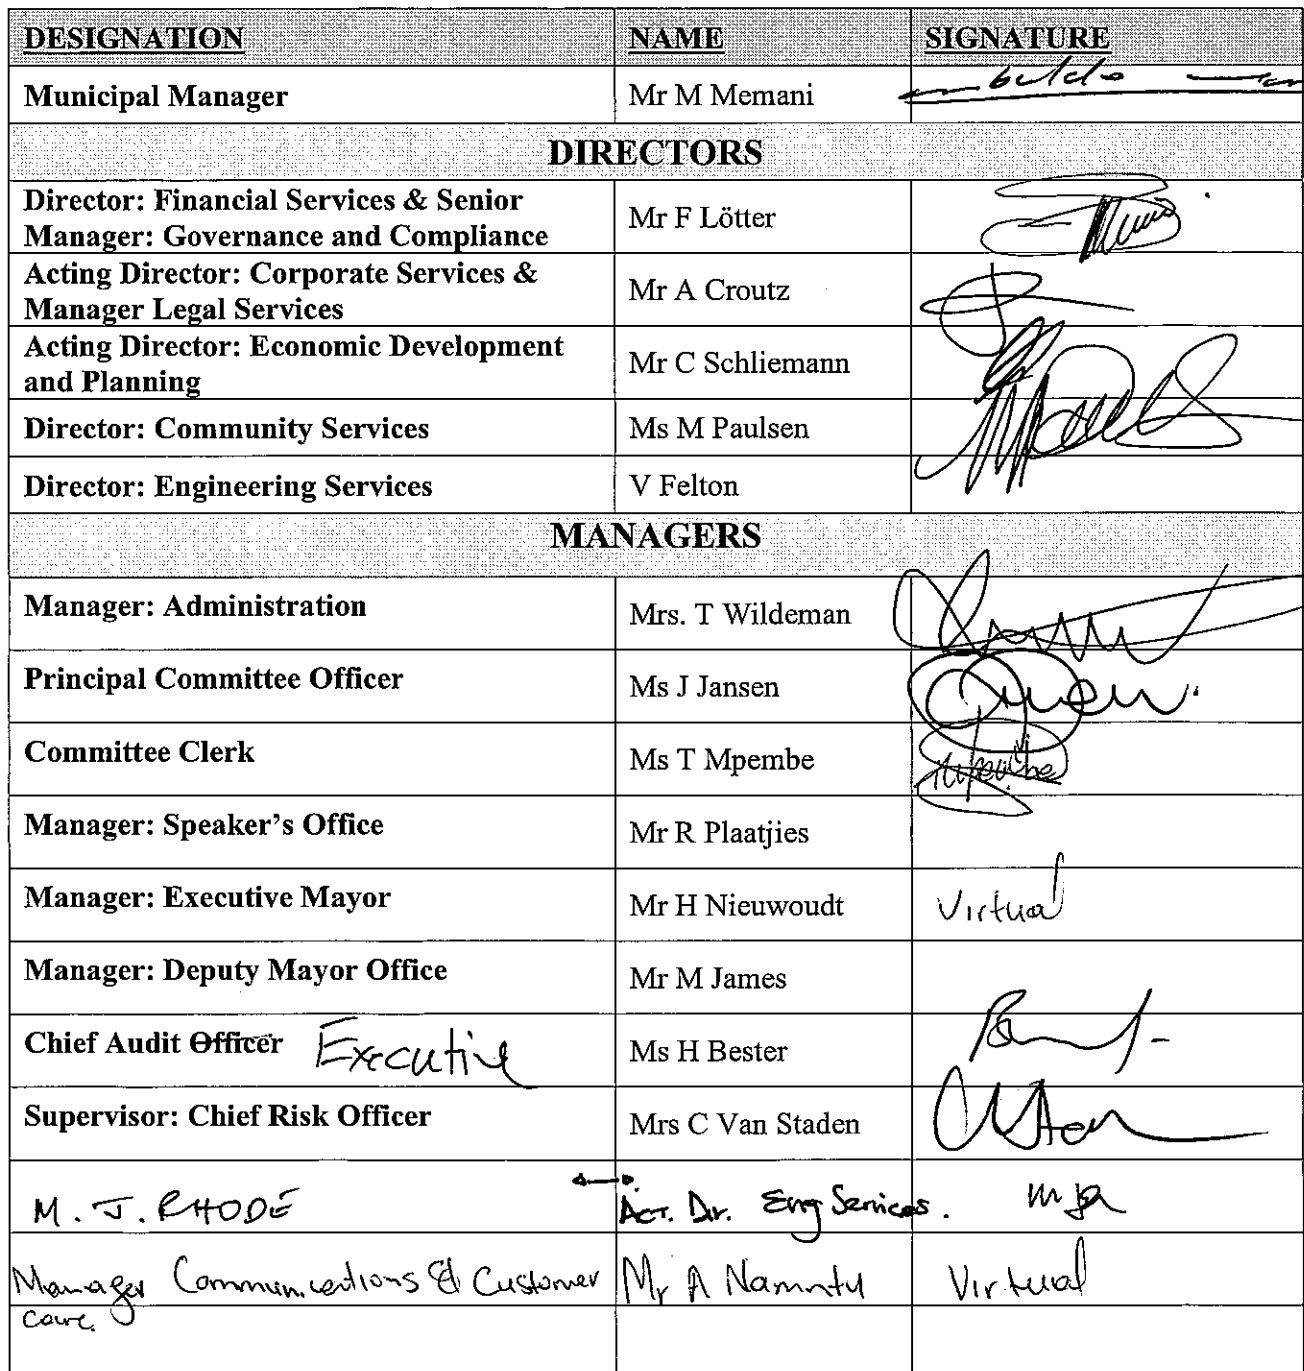 DESIGNATION NAME SIGNATURE
Municipal Manager Mr M Memani
DIRECTORS
Director: Financial Services & Senior
Manager: Governance and Compliance Mr F Lötter
Acting Director: Corporate Services &
Manager Legal Services Mr A Croutz
Acting Director: Economic Development
and Planning Mr C Schliemann
Director: Community Services Ms M Paulsen
Director: Engineering Services V Felton
MANAGERS
Manager: Administration Mrs. T Wildeman
Principal Committee Officer Ms J Jansen
Committee Clerk Ms T Mpembe
Manager: Speaker’s Office Mr R Plaatjies
Manager: Executive Mayor Mr H Nieuwoudt Virtual
Manager: Deputy Mayor Office Mr M James
Chief Audit Officer Executive Ms H Bester
Supervisor: Chief Risk Officer Mrs C Van Staden
M. J. RHODE Act. Dir. Eng Services.
Manager Communications & Customer Mr A Virtual
care.